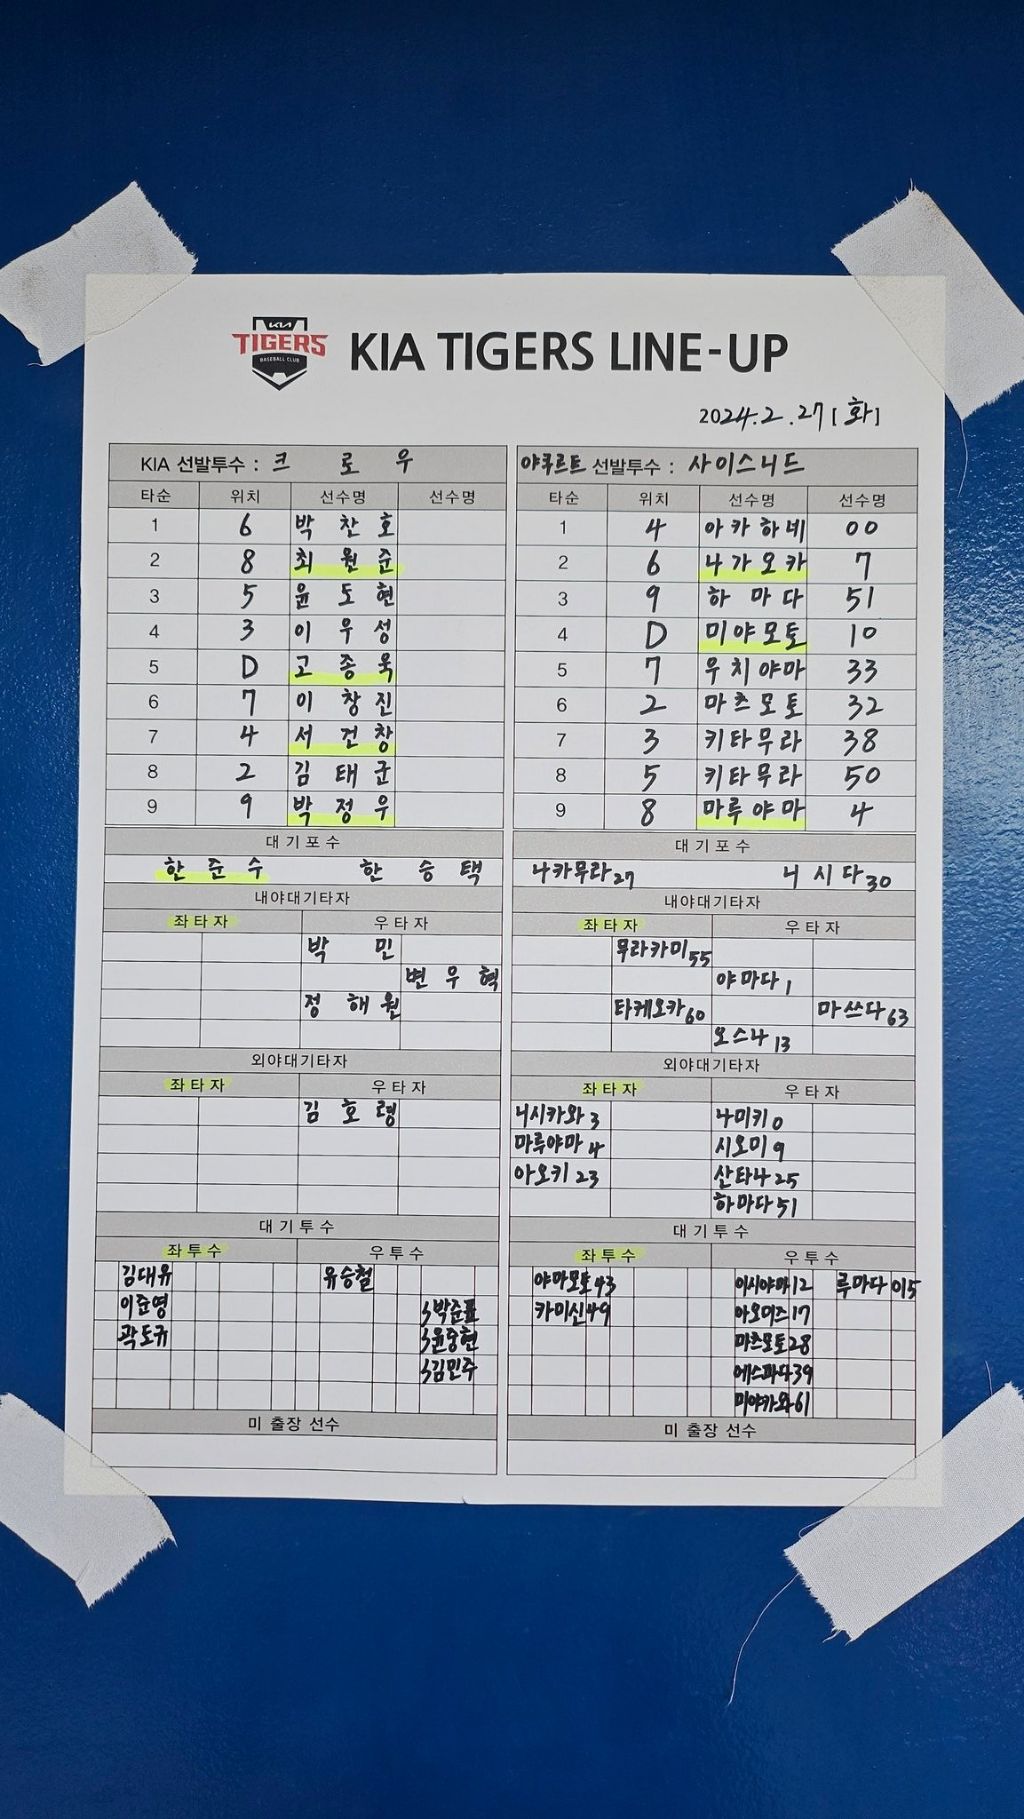 KIA
TIGERS
BASEBALL CLUB
KIA TIGERS LINE-UP
2024.2.27[화]
KIA 선발투수 : 크 로 우
타순 위치 선수명 선수명
1 6 박 찬 호
2 8 최 원 준
3 5 윤 도 현
4 3 이 우 성
5 D 고 종 욱
6 7 이 창 진
7 4 서 건 창
8 2 김 태 군
9 9 박 정 우
대 기 포 수
한 준 수 한 승 택
내야대기타자
좌 타 자 우 타 자
박 민
변 우 혁
정 해 원
외야대기타자
좌 타 자 우 타 자
김 호 령
대 기 투 수
좌 투 수 우 투 수
김대유 유승철
이준영 S박준표
곽도규 S윤중현
S김민주
미 출장 선수
야쿠르트 선발투수 : 사이스니드
타순 위치 선수명 선수명
1 4 아카하네 00
2 6 나가오카 7
3 9 하 마 다 51
4 D 미야모토 10
5 7 우치야마 33
6 2 마츠모토 32
7 3 키타무라 38
8 5 키타무라 50
9 8 마루야마 4
대 기 포 수
나카무라27 니 시 다30
내야대기타자
좌 타 자 우 타 자
무라카미55
야마다1
타케오카60 마쓰다63
오스나13
외야대기타자
좌 타 자 우 타 자
니시카와3 나미키0
마루야마4 시오미9
아오키23 산타나25
하마다51
대 기 투 수
좌 투 수 우 투 수
야마모토43 이시야마12 루마다015
카미신49 아오미즈17
마츠모토28
에스파다39
미야카와61
미 출장 선수